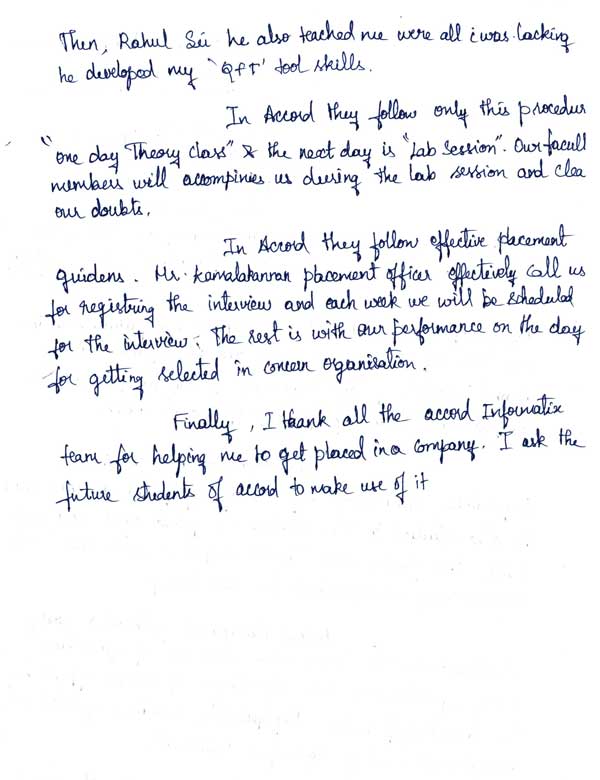 Then, Rahul Sir he also teached me were all i was lacking
he developed my 'QFT' tool skills.
In Accord they follow only this procedur
"one day Theory class" & the next day is "Lab Session". Our facult
members will accompinies us during the lab session and clea
our doubts.
In Accord they follow effective placement
guidens. Mr. Kamalakannan placement officer effectively call us
for registring the interview and each week we will be scheduled
for the interview; The rest is with our performance on the day
for getting selected in concern organisation.
Finally, I thank all the accord Informatix
team for helping me to get placed in a company. I ask the
future students of accord to make use of it